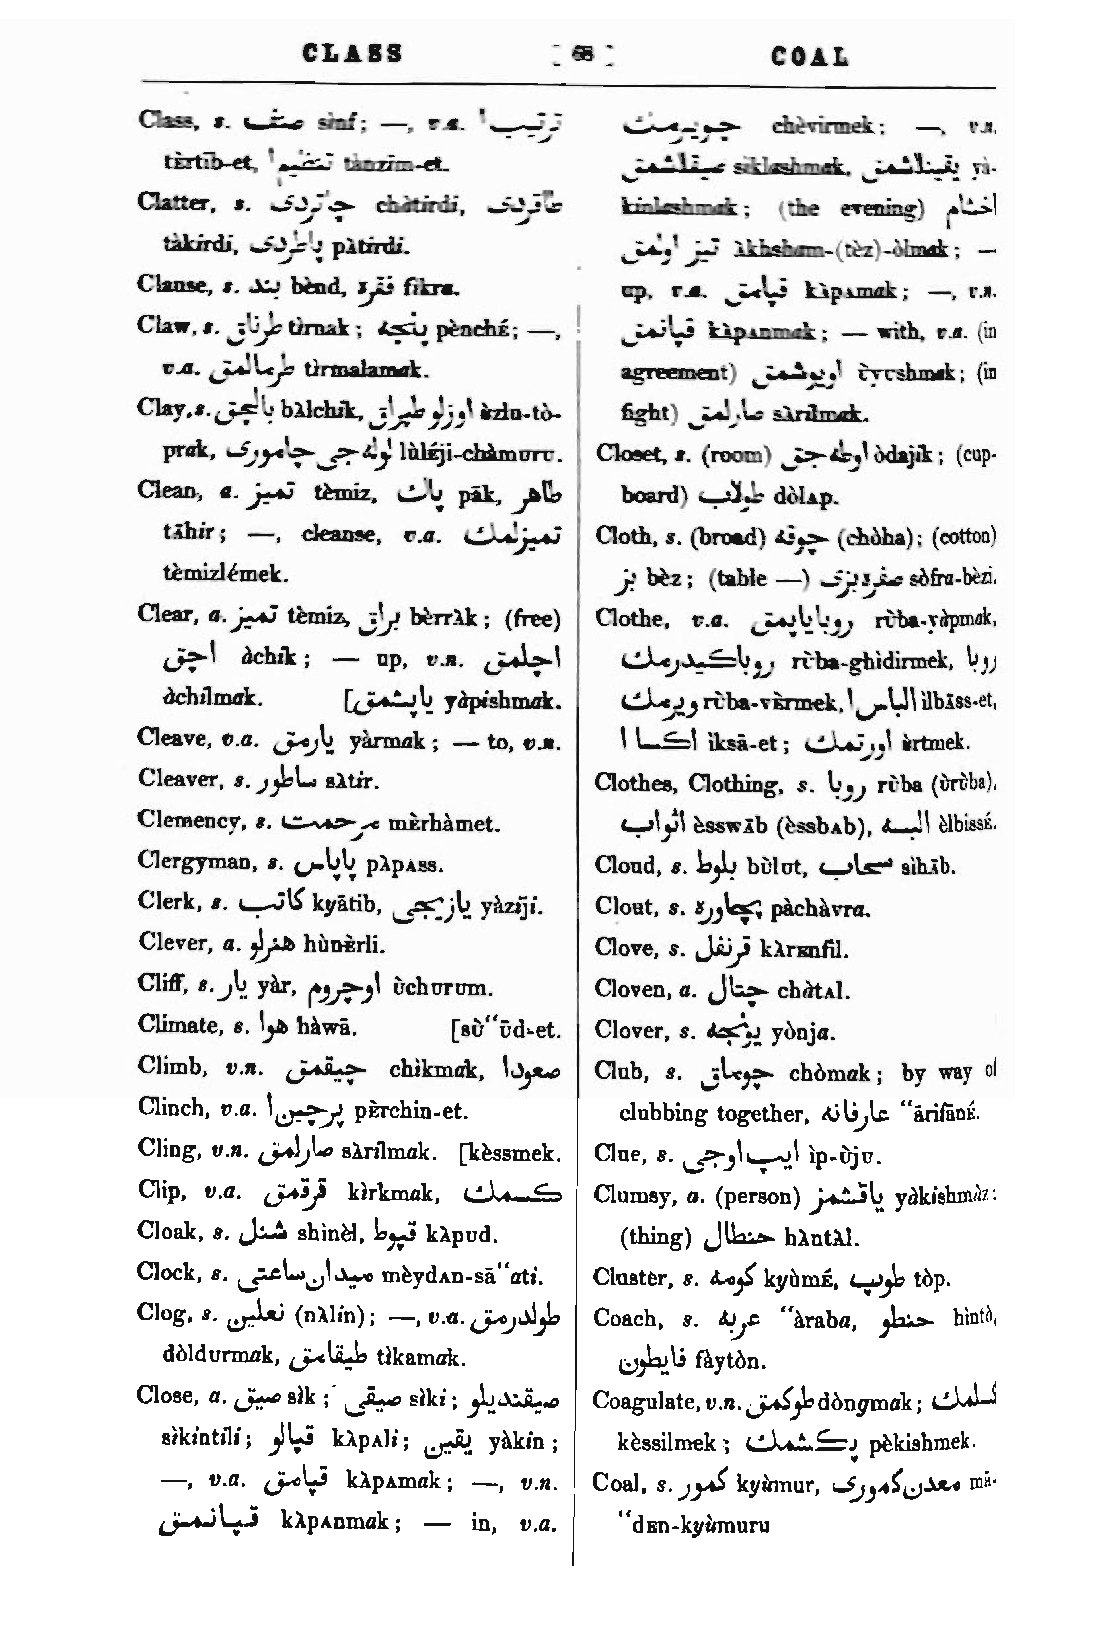 CLASS [ 68 ] COAL
Class, s. صنف sìnf; —, v.a. ترتيب ا
tèrtīb-et, تنظيم ا tànzīm-et.
Clatter, s. چاتردى chàtirdi, طاقردى
tàkirdi, پاطردى pàtirdi.
Clause, s. بند bènd, فقره fìkra.
Claw, s. طرناق tìrnak; پنچه pènché; —,
v.a. طرمالامق tìrmalamak.
Clay, s. بالچق bàlchik, اوزلو طپراق ùzlu-tò-
prak, لوله جى چامورى lùléji-chàmuru.
Clean, a. تميز tèmiz, پاك pāk, طاهر
tāhir; —, cleanse, v.a. تميزلمك
tèmizlémek.
Clear, a. تميز tèmiz, براق bèrràk; (free)
آچق àchik; — up, v.n. آچلمق
àchilmak. [ياپشمق yàpishmak.
Cleave, v.a. يارمق yàrmak; — to, v.n.
Cleaver, s. ساطور sàtir.
Clemency, s. مرحمت mèrhàmet.
Clergyman, s. پاپاس pàpass.
Clerk, s. كاتب kyātib, يازيجى yàziji.
Clever, a. هنرلو hùnèrli.
Cliff, s. يار yàr, اوچروم ùchurum.
Climate, s. هوا hàwā. [sù“ūd-et.
Climb, v.n. چيقمق chìkmak, صعود ا
Clinch, v.a. پرچين ا pèrchin-et.
Cling, v.n. صارلمق sàrilmak. [kèssmek.
Clip, v.a. قرقمق kìrkmak, كسمك
Cloak, s. شنل shinèl, قپوط kàpud.
Clock, s. ميدان ساعتى mèydan-sā“ati.
Clog, s. نعلين (nàlín); —, v.a. طولدرمق
dòldurmak, طيقامق tìkamak.
Close, a. صيق sìk; صيقى sìki; صيقنديلو
sìkintili; قپالو kàpali; يقين yàkin;
—, v.a. قپامق kàpamak; —, v.n.
قپانمق kàpanmak; — in, v.a.
چويرمك chèvirmek; —, v.n.
صيقلشمق sìklashmak, يقينلشمق yà-
kinlashmak; (the evening) اخشام
تيز اولمق àkhsham-(tèz)-òlmak; —
up, v.a. قپامق kàpamak; —, v.n.
قپانمق kàpanmak; — with, v.a. (in
agreement) اويوشمق ùyushmak; (in
fight) صارلمق sàrilmak.
Closet, s. (room) اوطه جق òdajik; (cup-
board) طولاب dòlap.
Cloth, s. (broad) چوقه (chòha); (cotton)
بز bèz; (table —) سفره بزى sòfra-bèzi.
Clothe, v.a. روبا ياپمق rùba-yàpmak,
روبا كيدرمك rùba-ghìdirmek, روبا
ويرمك rùba-vèrmek, الباس ا ilbāss-et,
اكسا ا ìksā-et; اورتمك ùrtmek.
Clothes, Clothing, s. روبا rùba (ùrùba),
اثواب èsswāb (èssbab), البسه èlbissé.
Cloud, s. بلوط bùlut, سحاب sihāb.
Clout, s. پچاوره pàchàvra.
Clove, s. قرنفل kàrenfil.
Cloven, a. چتال chàtal.
Clover, s. يونجه yònja.
Club, s. چوماق chòmak; by way of
clubbing together, عارفانه “ārifāné.
Clue, s. ايپ اوجى ìp-ùju.
Clumsy, a. (person) ياقشمز yàkishmàz:
(thing) حنطال hàntàl.
Cluster, s. كومه kyùmé, طوپ tòp.
Coach, s. عربه “àraba, حنطو hìntò,
فايطون fàytòn.
Coagulate, v.n. طوكمق dòngmak; كسلمك
kèssilmek; پكشمك pèkishmek.
Coal, s. كمور kyùmur, معدن كمورى mā-
“den-kyùmuru